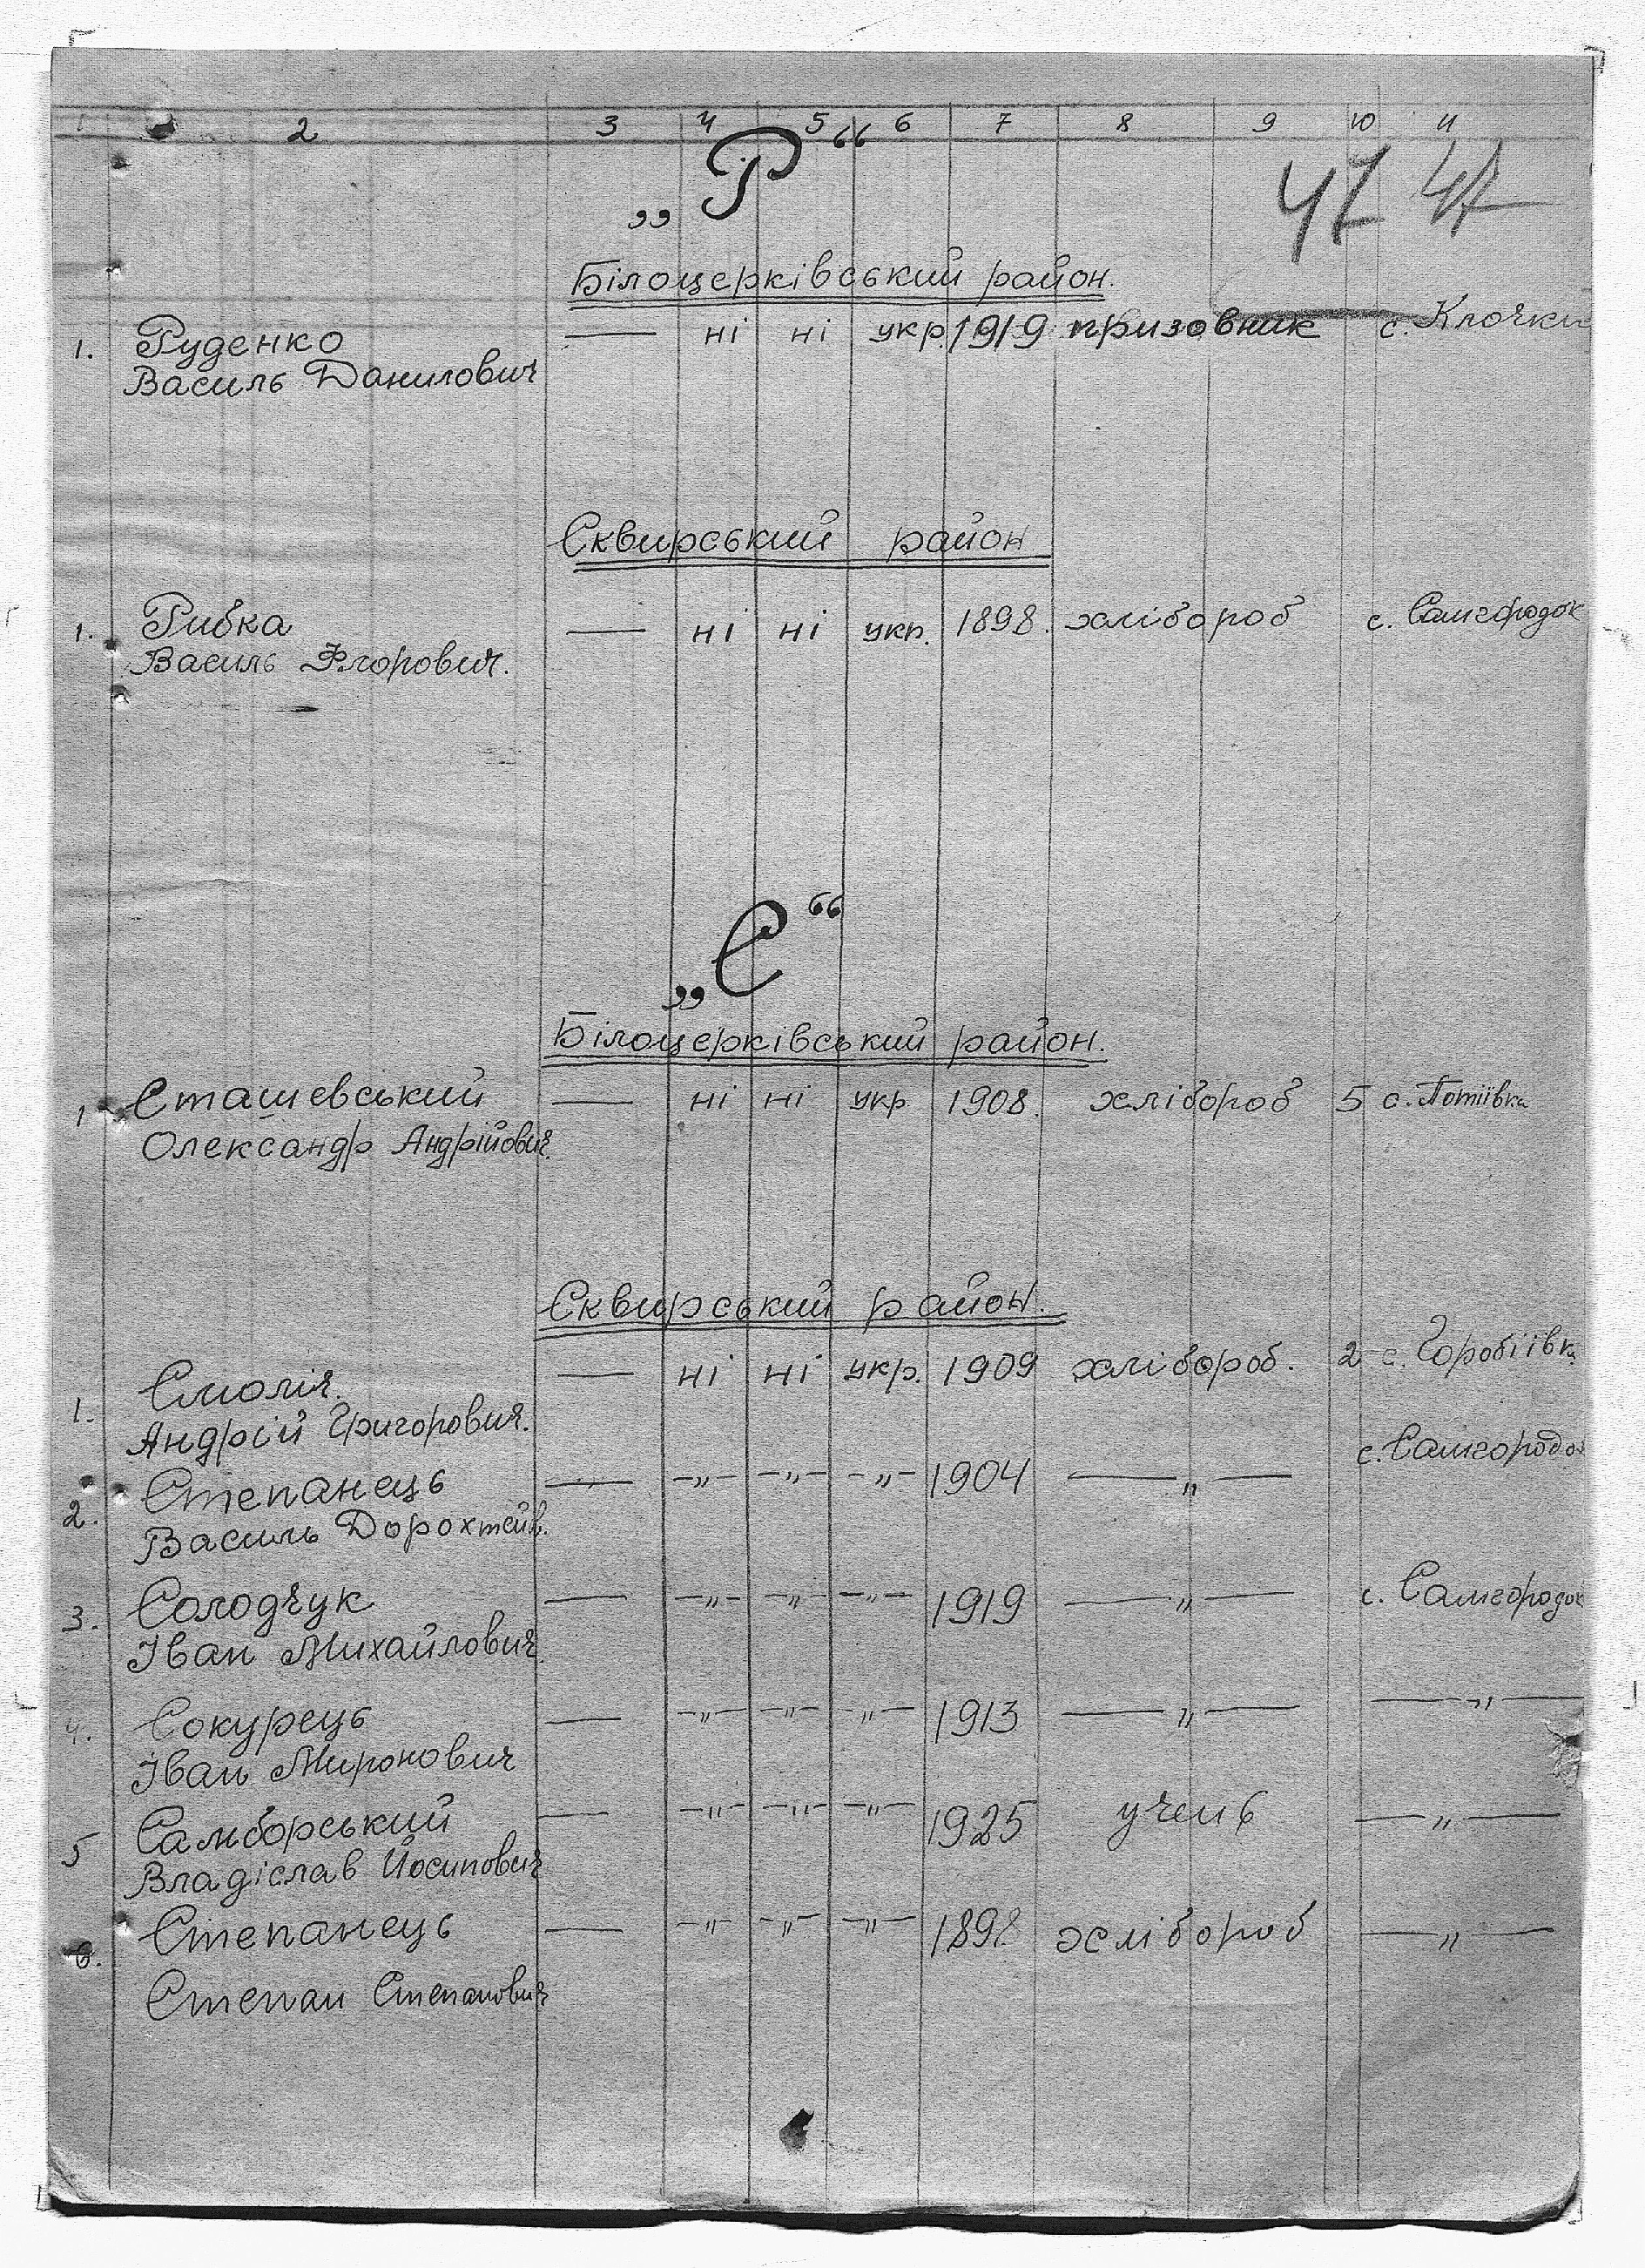 1 2 3 4 5 6 7 8 9 10 11
„Р“
47 47
Білоцерківський район.
1. Руденко — ні ні укр. 1919 призовник с. Клочки
Василь Данилович
Сквирський район
1. Рибка — ні ні укр. 1898. хлібороб с. Самгородок
Василь Флорович.
„С“
Білоцерківський район.
1 Сташевський — ні ні укр 1908. хлібороб 5 с. Потіївка
Олександр Андрійович.
Сквирський район.
1. Смолій. — ні ні укр. 1909 хлібороб. 2 с. Горобіївка
Андрій Григорович.
2. Степанець — -„- -„- -„- 1904 —„— с. Самгородок
Василь Дорохтейв.
3. Солодчук — -„- -„- -„- 1919 —„— с. Самгородок
Іван Михайлович
4. Сокурець — -„- -„- -„- 1913 —„— —„—
Іван Миронович
5 Самборський — -„- -„- -„- 1925 учень —„—
Владіслав Йосипович
6. Степанець — -„- -„- -„- 1898 хлібороб —„—
Степан Степанович